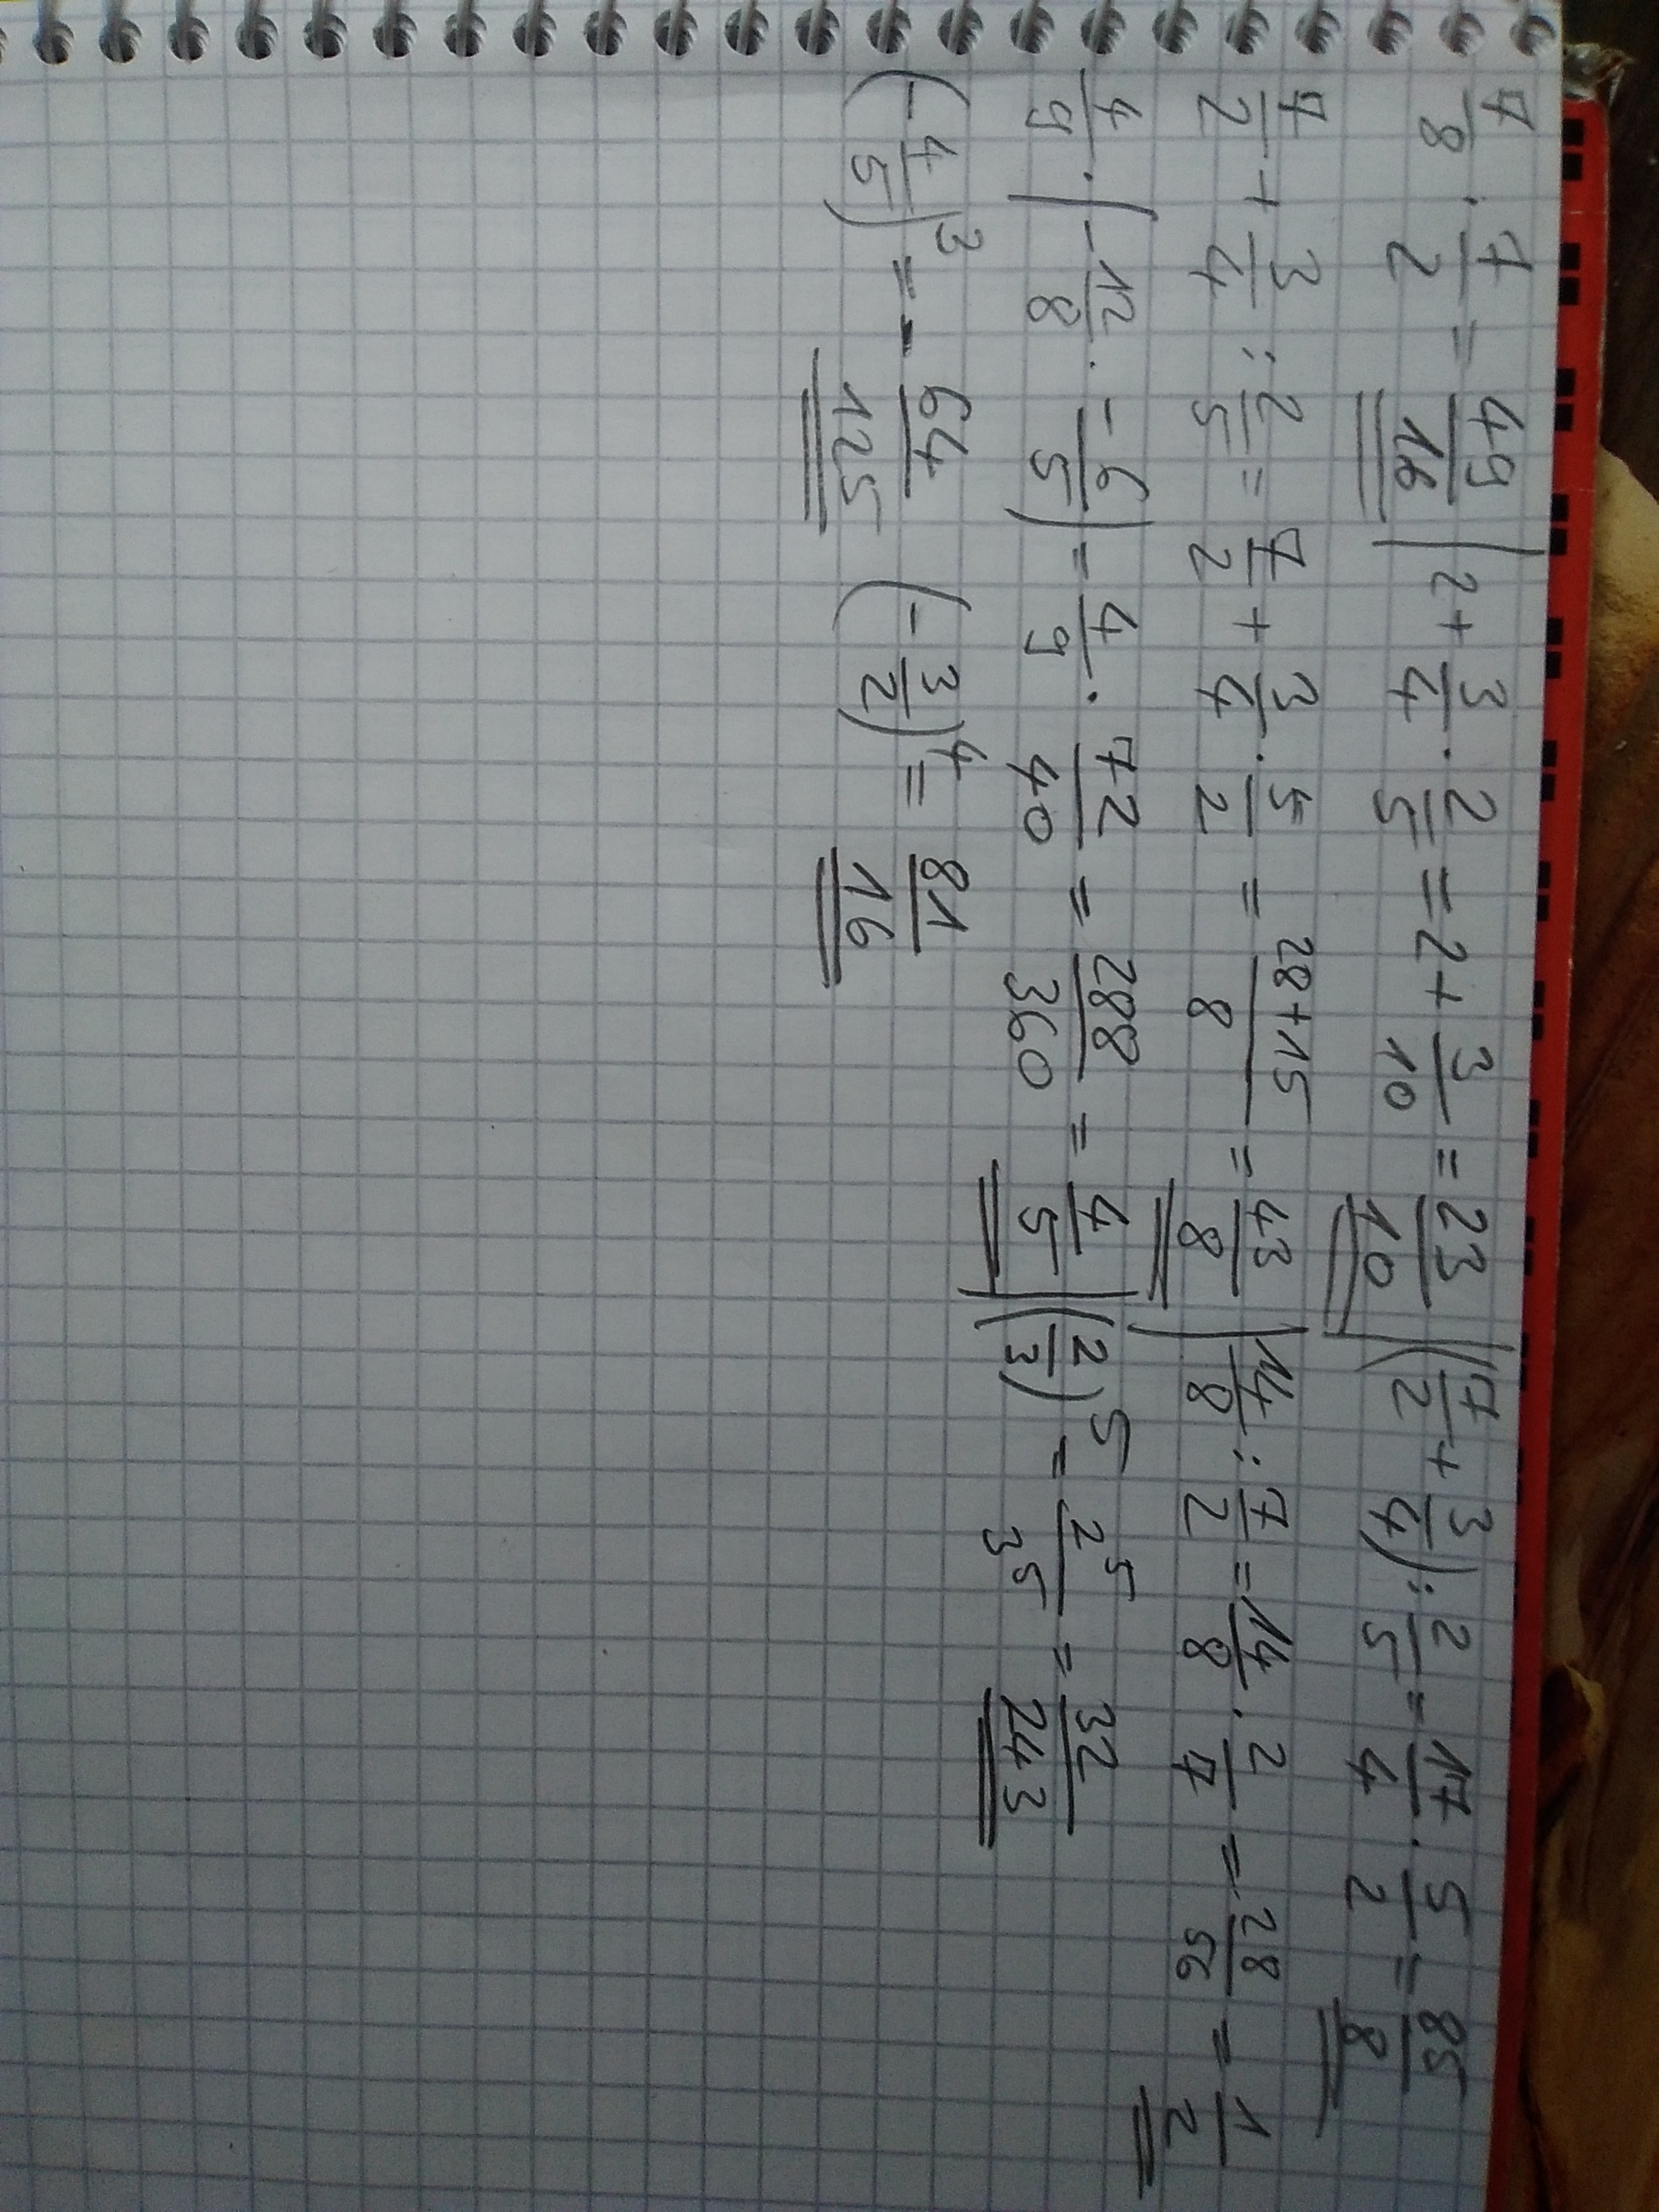 7/8 · 7/2 = 49/16 | 2 + 3/4 · 2/5 = 2 + 3/10 = 23/10 | (7/2 + 3/4) : 2/5 = 17/4 · 5/2 = 85/8
7/2 + 3/4 : 2/5 = 7/2 + 3/4 · 5/2 = (28+15)/8 = 43/8 | 14/8 : 7/2 = 14/8 · 2/7 = 28/56 = 1/2
4/9 · (-12/8 · -6/5) = 4/9 · 72/40 = 288/360 = 4/5 | (2/3)^5 = 2^5/3^5 = 32/243
(-4/5)^3 = -64/125 (-3/2)^4 = 81/16